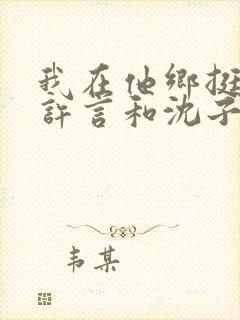 我在他鄉挺
許言和沈子
韦某